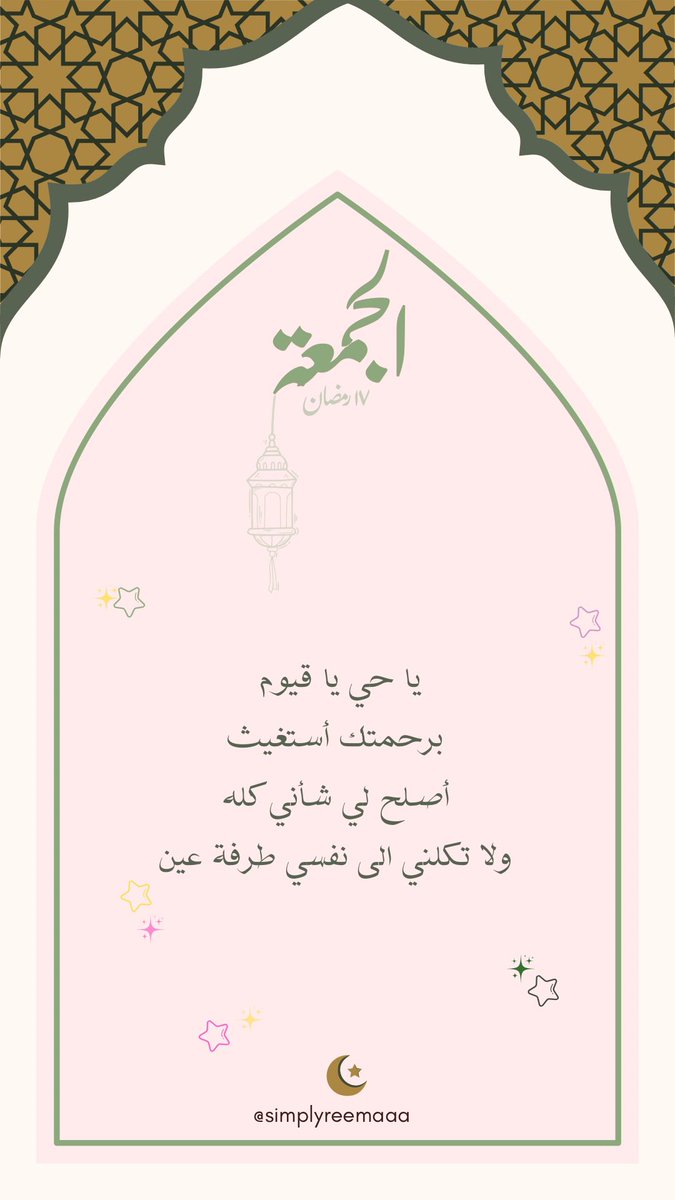 الجمعة
١٧ رمضان
يا حي يا قيوم
برحمتك أستغيث
أصلح لي شأني كله
ولا تكلني الى نفسي طرفة عين
@simplyreemaaa